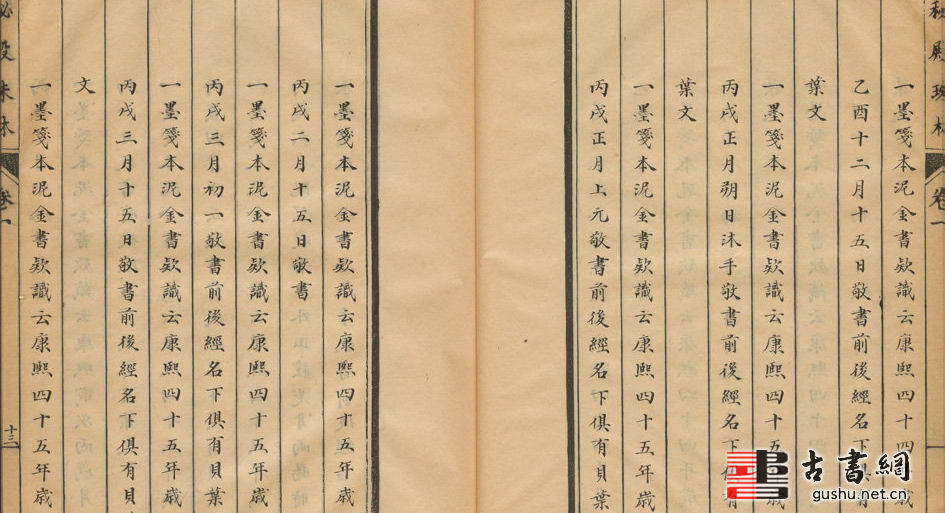 秘殿珠林 卷一
一墨箋本泥金書欵識云康熙四十四歲
乙酉十二月十五日敬書前後經名下俱有
葉文
一墨箋本泥金書欵識云康熙四十五歲
丙戌正月朔日沐手敬書前後經名下俱有
葉文
一墨箋本泥金書欵識云康熙四十五年歲
丙戌正月上元敬書前後經名下俱有貝葉
一墨箋本泥金書欵識云康熙四十五年歲
丙戌二月十五日敬書
一墨箋本泥金書欵識云康熙四十五年歲
丙戌三月初一敬書前後經名下俱有貝葉
一墨箋本泥金書欵識云康熙四十五年歲
丙戌三月十五日敬書前後經名下俱有貝
文
一墨箋本泥金書欵識云康熙四十五年歲
秘殿珠林 卷一 十三
古書網
gushu.net.cn